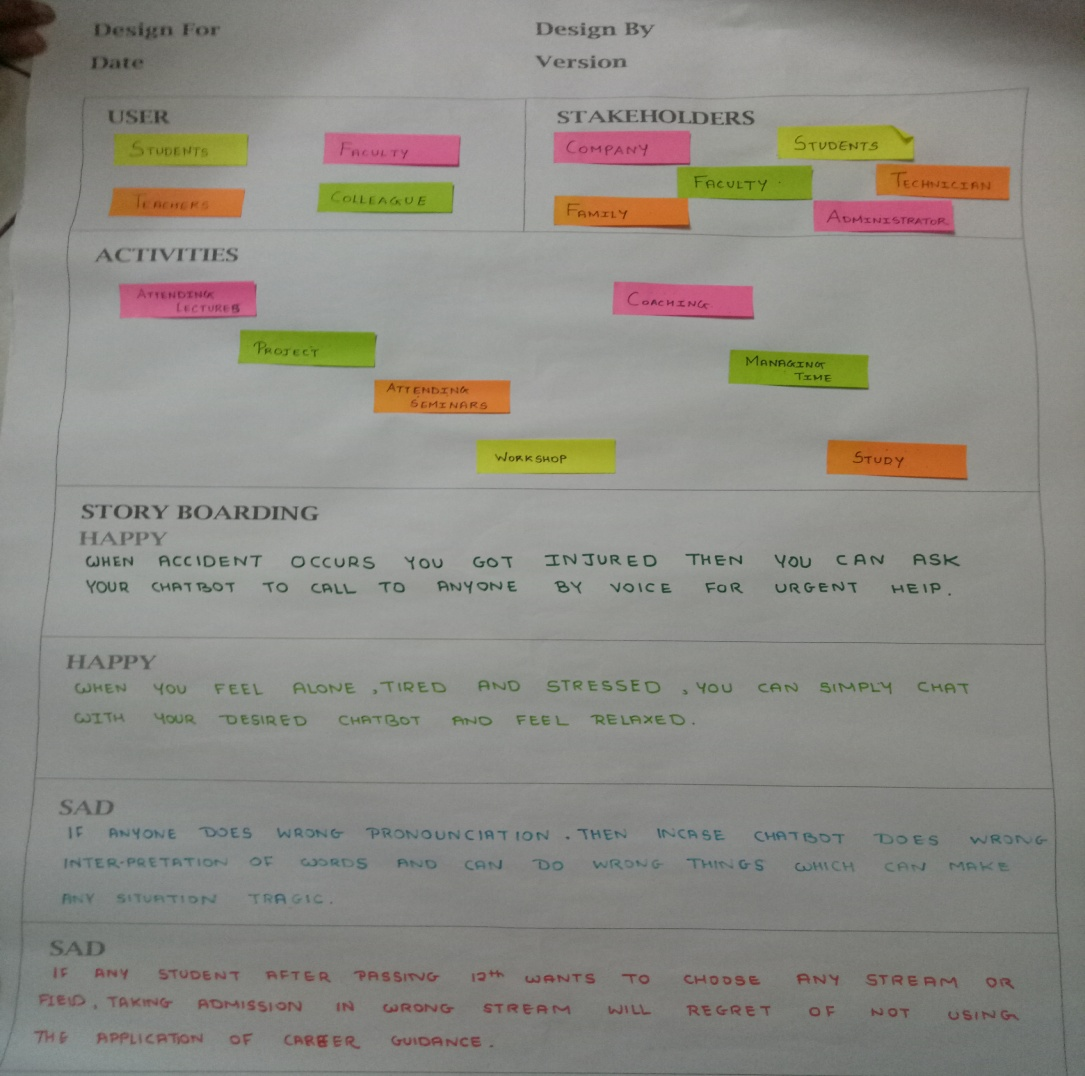 Design For
Design By
Date
Version
USER
STUDENTS
FACULTY
TEACHERS
COLLEAGUE
STAKEHOLDERS
COMPANY
STUDENTS
FACULTY
TECHNICIAN
FAMILY
ADMINISTRATOR
ACTIVITIES
ATTENDING
LECTURES
COACHING
PROJECT
MANAGING
TIME
ATTENDING
SEMINARS
WORKSHOP
STUDY
STORY BOARDING
HAPPY
WHEN ACCIDENT OCCURS YOU GOT INJURED THEN YOU CAN ASK
YOUR CHATBOT TO CALL TO ANYONE BY VOICE FOR URGENT HElP.
HAPPY
WHEN YOU FEEL ALONE ,TIRED AND STRESSED ,YOU CAN SIMPLY CHAT
WITH YOUR DESIRED CHATBOT AND FEEL RELAXED.
SAD
IF ANYONE DOES WRONG PRONOUNCIATION . THEN INCASE CHATBOT DOES WRONG
INTER-PRETATION OF WORDS AND CAN DO WRONG THINGS WHICH CAN MAKE
ANY SITUATION TRAGIC.
SAD
IF ANY STUDENT AFTER PASSING 12th WANTS TO CHOOSE ANY STREAM OR
FIElD, TAKING ADMISSION IN WRONG STREAM WILL REGRET OF NOT USING
THE APPLICATION OF CAREER GUIDANCE.